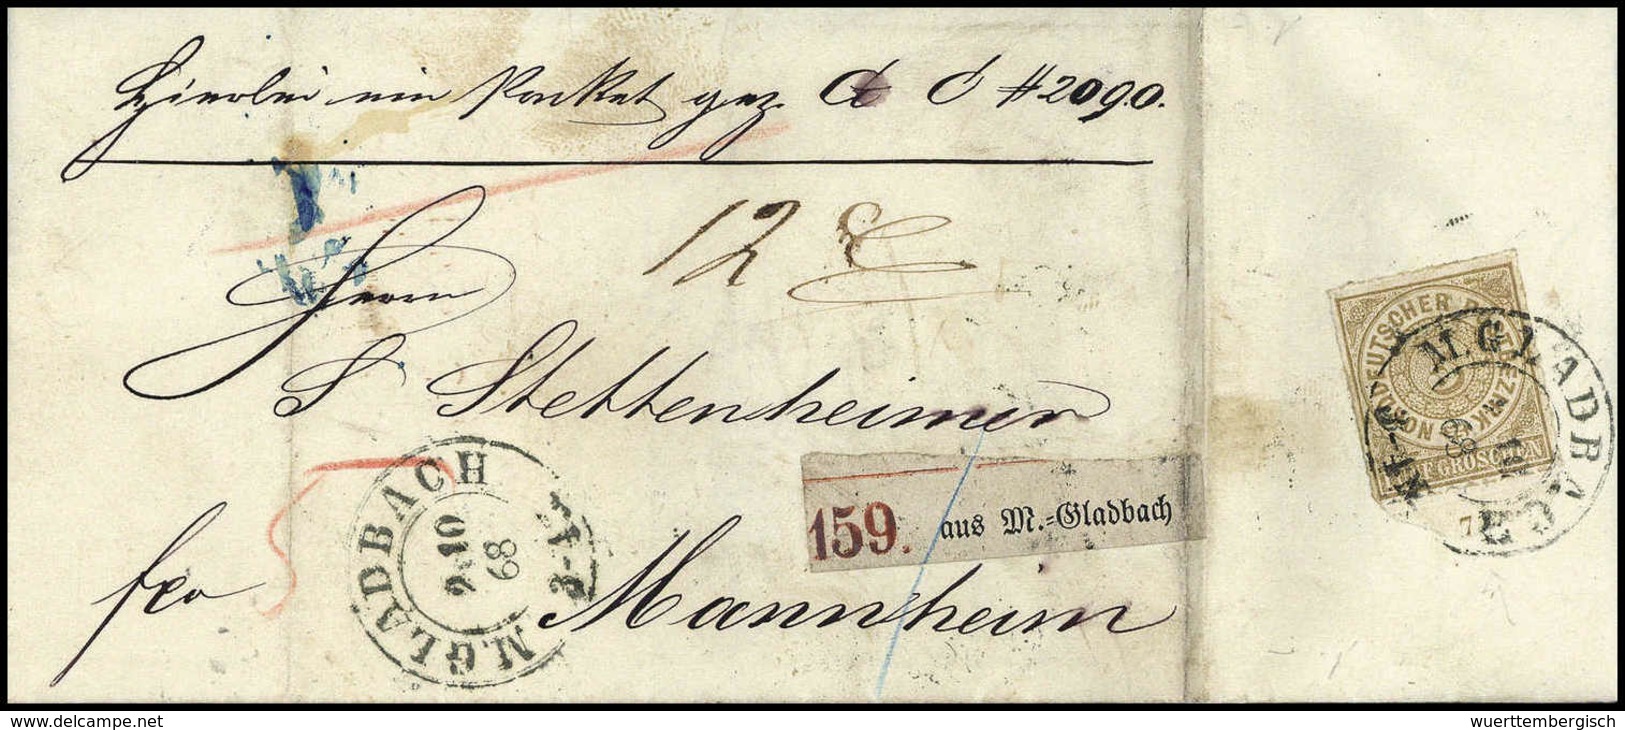 Hierbei ein Packet gez. #2090.
12
Herrn
S Stettenheimer
159. aus M.-Gladbach
fco Mannheim
M. GLADBACH
2 10
68
3-4
NORDDEUTSCHER POSTBEZIRK
GROSCHEN
M. GLADBACH
68
delcampe.net
wuerttembergisch